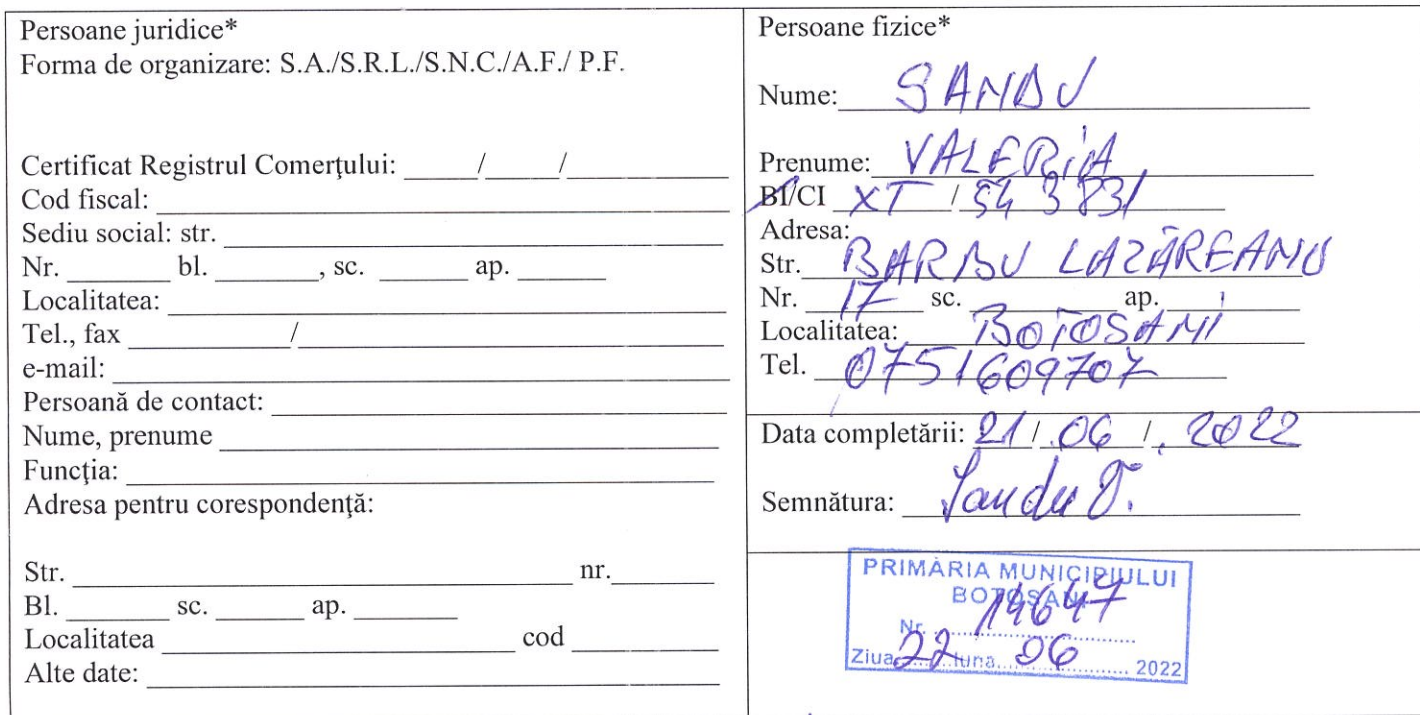 Persoane juridice*
Forma de organizare: S.A./S.R.L./S.N.C./A.F./ P.F.
Certificat Registrul Comerţului: _____/_____/__________
Cod fiscal:
Sediu social: str.
Nr. ______ bl. ______, sc. ______ ap. ______
Localitatea:
Tel., fax __________/__________
e-mail:
Persoană de contact:
Nume, prenume
Funcţia:
Adresa pentru corespondenţă:
Str. __________ nr. ______
Bl. ______ sc. ______ ap. ______
Localitatea __________ cod ______
Alte date:
Persoane fizice*
Nume: SANDU
Prenume: VALERIA
BI/CI XT / 543831
Adresa:
Str. BARBU LAZĂREANU
Nr. 17 sc. ______ ap. ______
Localitatea: BOTOSANI
Tel. 0751609707
Data completării: 21/.06/.2022
Semnătura: Sandu V.
PRIMĂRIA MUNICIPIULUI
BOTOŞANI
Nr. 14647
Ziua 22 luna 06 2022